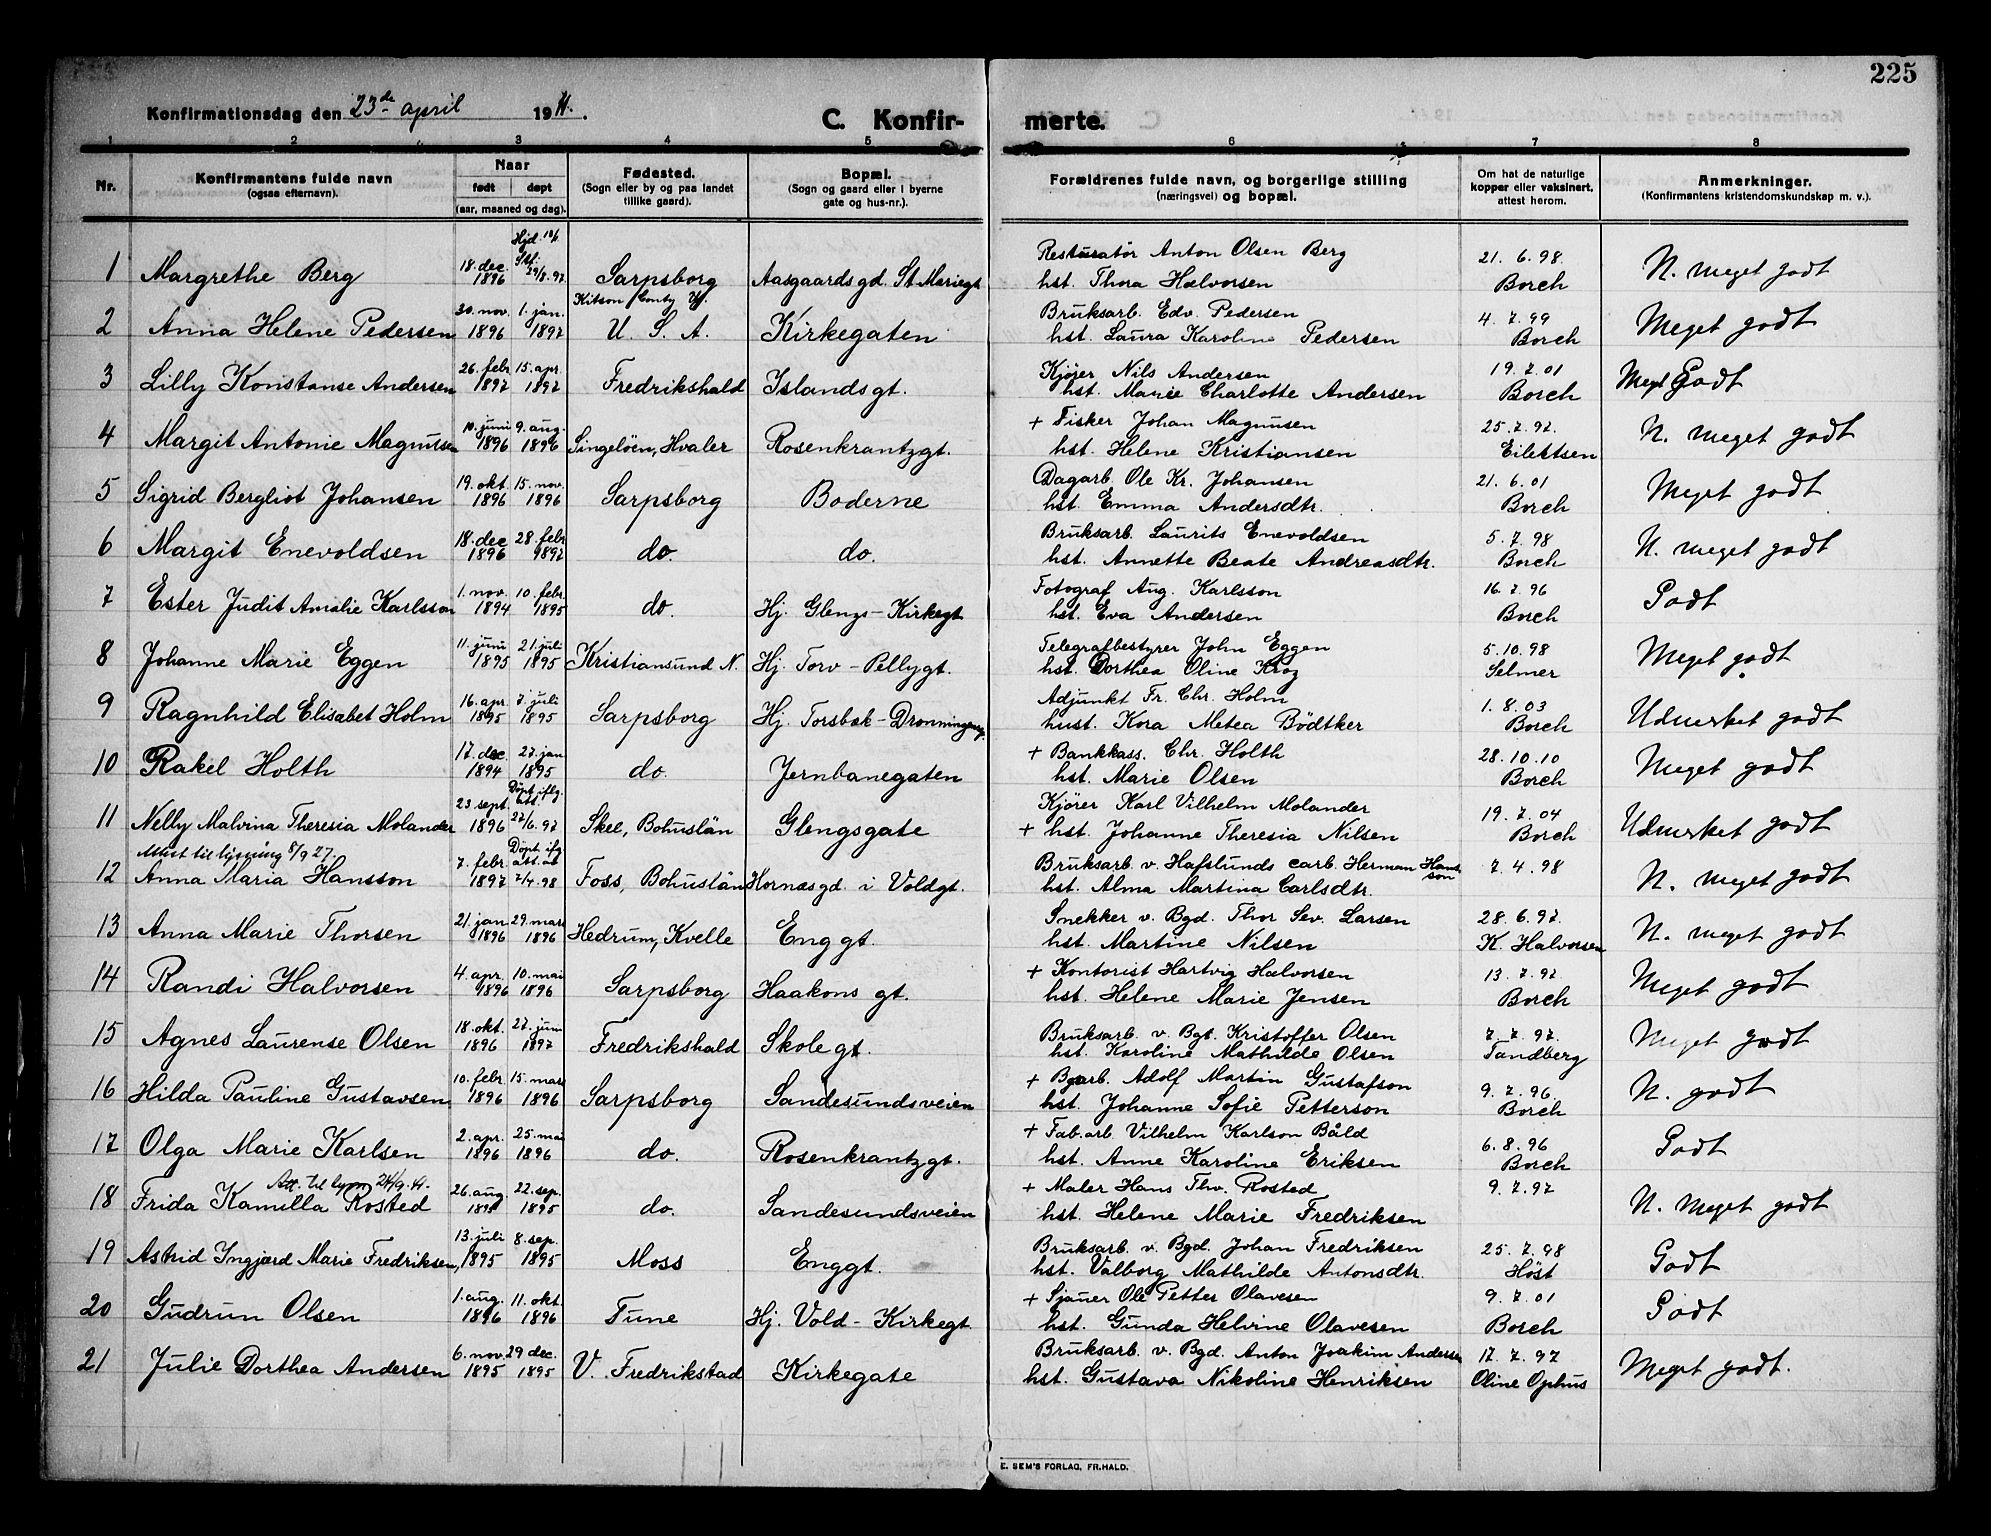 225
Konfirmationsdag den 23de april 1911.
C. Konfirmerte.
1 2 3 4 5 6 7 8
Nr.
Konfirmantens fulde navn
(ogsaa efternavn).
Naar
født døpt
(aar, maaned og dag).
Fødested.
(Sogn eller by og paa landet
tillike gaard).
Bopæl.
(Sogn og gaard eller i byerne
gate og hus-nr.).
Forældrenes fulde navn, og borgerlige stilling
(næringsvei) og bopæl.
Om hat de naturlige
kopper eller vaksinert,
attest herom.
Anmerkninger.
(Konfirmantens kristendomskundskap m. v.).
1 Margrethe Berg 18. dec. 1896 Hjd. 29/8. 97 Sarpsborg Aasgaardsgd. St Mariegt Resturatør Anton Olsen Berg 21. 6. 98. N. meget godt
hst. Thora Halvorsen Borch
2 Anna Helene Pedersen 20. nov. 1896 1. jan. 1897 Kitson Conty U. S. A. Kirkegaten Bruksarb. Edv. Pedersen 4. 7. 99 Meget godt
hst. Laura Karoline Pedersen Borch
3 Lilly Konstanse Andersen 26. febr. 1897 15. apr. 1897 Fredrikshald Islandsgt. Kjører Nils Andersen 19. 7. 01 Meget Godt
hst. Marie Charlotte Andersen Borch
4 Margit Antonie Magnussen 10. juni 1896 9. aug. 1896 Singeløen, Hvaler Rosenkrantzgt. + Fisker Johan Magnusen 25. 7. 97. N. meget godt
hst. Helene Kristiansen Eilertsen
5 Sigrid Bergliot Johansen 19. okt. 1896 15. nov. 1896 Sarpsborg Boderne Dagarb. Ole Kr. Johansen 21. 6. 01 Meget godt
hst. Emma Andersdtr. Borch
6 Margit Enevoldsen 18. dec 1896 28. febr 1897 do. do. Bruksarb. Laurits Enevoldsen 5. 7. 98 N. meget godt
hst. Annette Beate Andreasdtr. Borch
7 Ester Judit Amalie Karlsson 1. nov. 1894 10. febr. 1895 do. Hj. Glengs-Kirkegt Fotograf Aug. Karlsson 16. 7. 96 Godt
hst. Eva Andersen Borch
8 Johanne Marie Eggen 11. juni 1895 21. juli 1895 Kristiansund N. Hj. Torv-Pellygt. Telegrafbestyrer John Eggen 5. 10. 98 Meget godt
hst. Dorthea Oline Krog Selmer
9 Ragnhild Elisabet Holm 16. apr. 1895 7. juli 1895 Sarpsborg Hj. Torsbæk-Dronningensg. Adjunkt Fr. Chr. Holm 1. 8. 03 Udmerket godt
hust. Kora Metea Bödtker Borch
10 Rakel Holth 17. dec. 1894 27. jan 1895 do. Jernbanegaten + Bankkass. Chr. Holth 28. 10. 10 Meget godt
hst. Marie Olsen Borch
11 Nelly Malvina Theresia Molander 23. sept. 1896 Døpt iflg. att. 27/6. 97 Skee, Bohuslän Glengsgate Kjører Karl Vilhelm Molander 19. 7. 04 Udmerket godt
+ hst. Johanne Theresia Nilsen Borch
Attest til lysning 8/9 27.
12 Anna Maria Hansson 7. febr. 1897 Døpt ifg att. at 7/4. 98 Foss, Bohuslän Hornæsgd. i Voldgt. Bruksarb. v. Hafslunds carb. Herman Hansson 7. 4. 98 N. meget godt
hst. Alma Martina Carlsdtr.
13 Anna Marie Thorsen 21. jan 1896 29. mars 1896 Hedrum, Kvelle Enggt. Snekker v. Bgd. Thor Sev. Larsen 28. 6. 97. N. meget godt
hst. Martine Nilsen K. Halvorsen
14 Randi Halvorsen 4. apr. 1896 10. mai 1896 Sarpsborg Haakons gt. + Kontorist Hartvig Halvorsen 13. 7. 97 Meget godt
hst. Helene Marie Jensen Borch
15 Agnes Laurense Olsen 18. okt. 1896 27. juni 1897 Fredrikshald Skolegt. Bruksarb. v. Bgt. Kristoffer Olsen 7. 7. 97 Meget godt
hst. Karoline Mathilde Olsen Tandberg
16 Hilda Pauline Gustavsen 10. febr. 1896 15. mars 1896 Sarpsborg Sandesundsveien + Bgarb. Adolf Martin Gustafson 9. 7. 96. N. godt
hst. Johanne Sofie Petterson Borch
17 Olga Marie Karlsen 2. apr. 1896 25. mai 1896 do. Rosenkrantzgt. + Fab.arb. Vilhelm Karlson Båld 6. 8. 96 Godt
hst. Anne Karoline Eriksen Borch
Att. til lysn
18 Frida Kamilla Rosted 26. aug. 1895 22. sep. 1895 do. Sandesundsveien + Maler Hans Thv. Rosted 9. 7. 97 N. Meget godt
hst. Helene Marie Fredriksen
19 Astrid Ingjærd Marie Fredriksen, 13. juli 1895 8. sep. 1895 Moss Enggt. Bruksarb. v. Bgd. Johan Fredriksen 25. 7. 98 Godt
hst. Valborg Mathilde Antonsdtr. Höst
20 Gudrun Olsen 1. aug. 1896 11. okt. 1896 Tune Hj. Vold-Kirkegt. + Sjauer Ole Petter Olavesen 9. 7. 01 Godt
hst. Gunda Helvine Olavesen Borch
21 Julie Dorthea Andersen 6. nov. 1895 29 dec. 1895 V. Fredrikstad Kirkegate Bruksarb. v. Bgd. Anton Joakim Andersen 17. 7. 97 Meget godt.
hst. Gustava Nikoline Henriksen Oline Ophus
E. SEM'S FORLAG, FR.HALD.